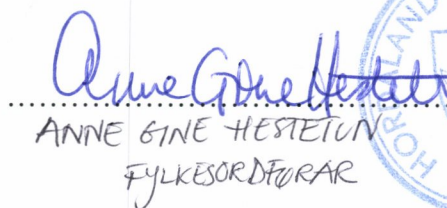 Anne Gine Hestetun
ANNE GINE HESTETUN
FYLKESORDFØRAR
HORDALAND